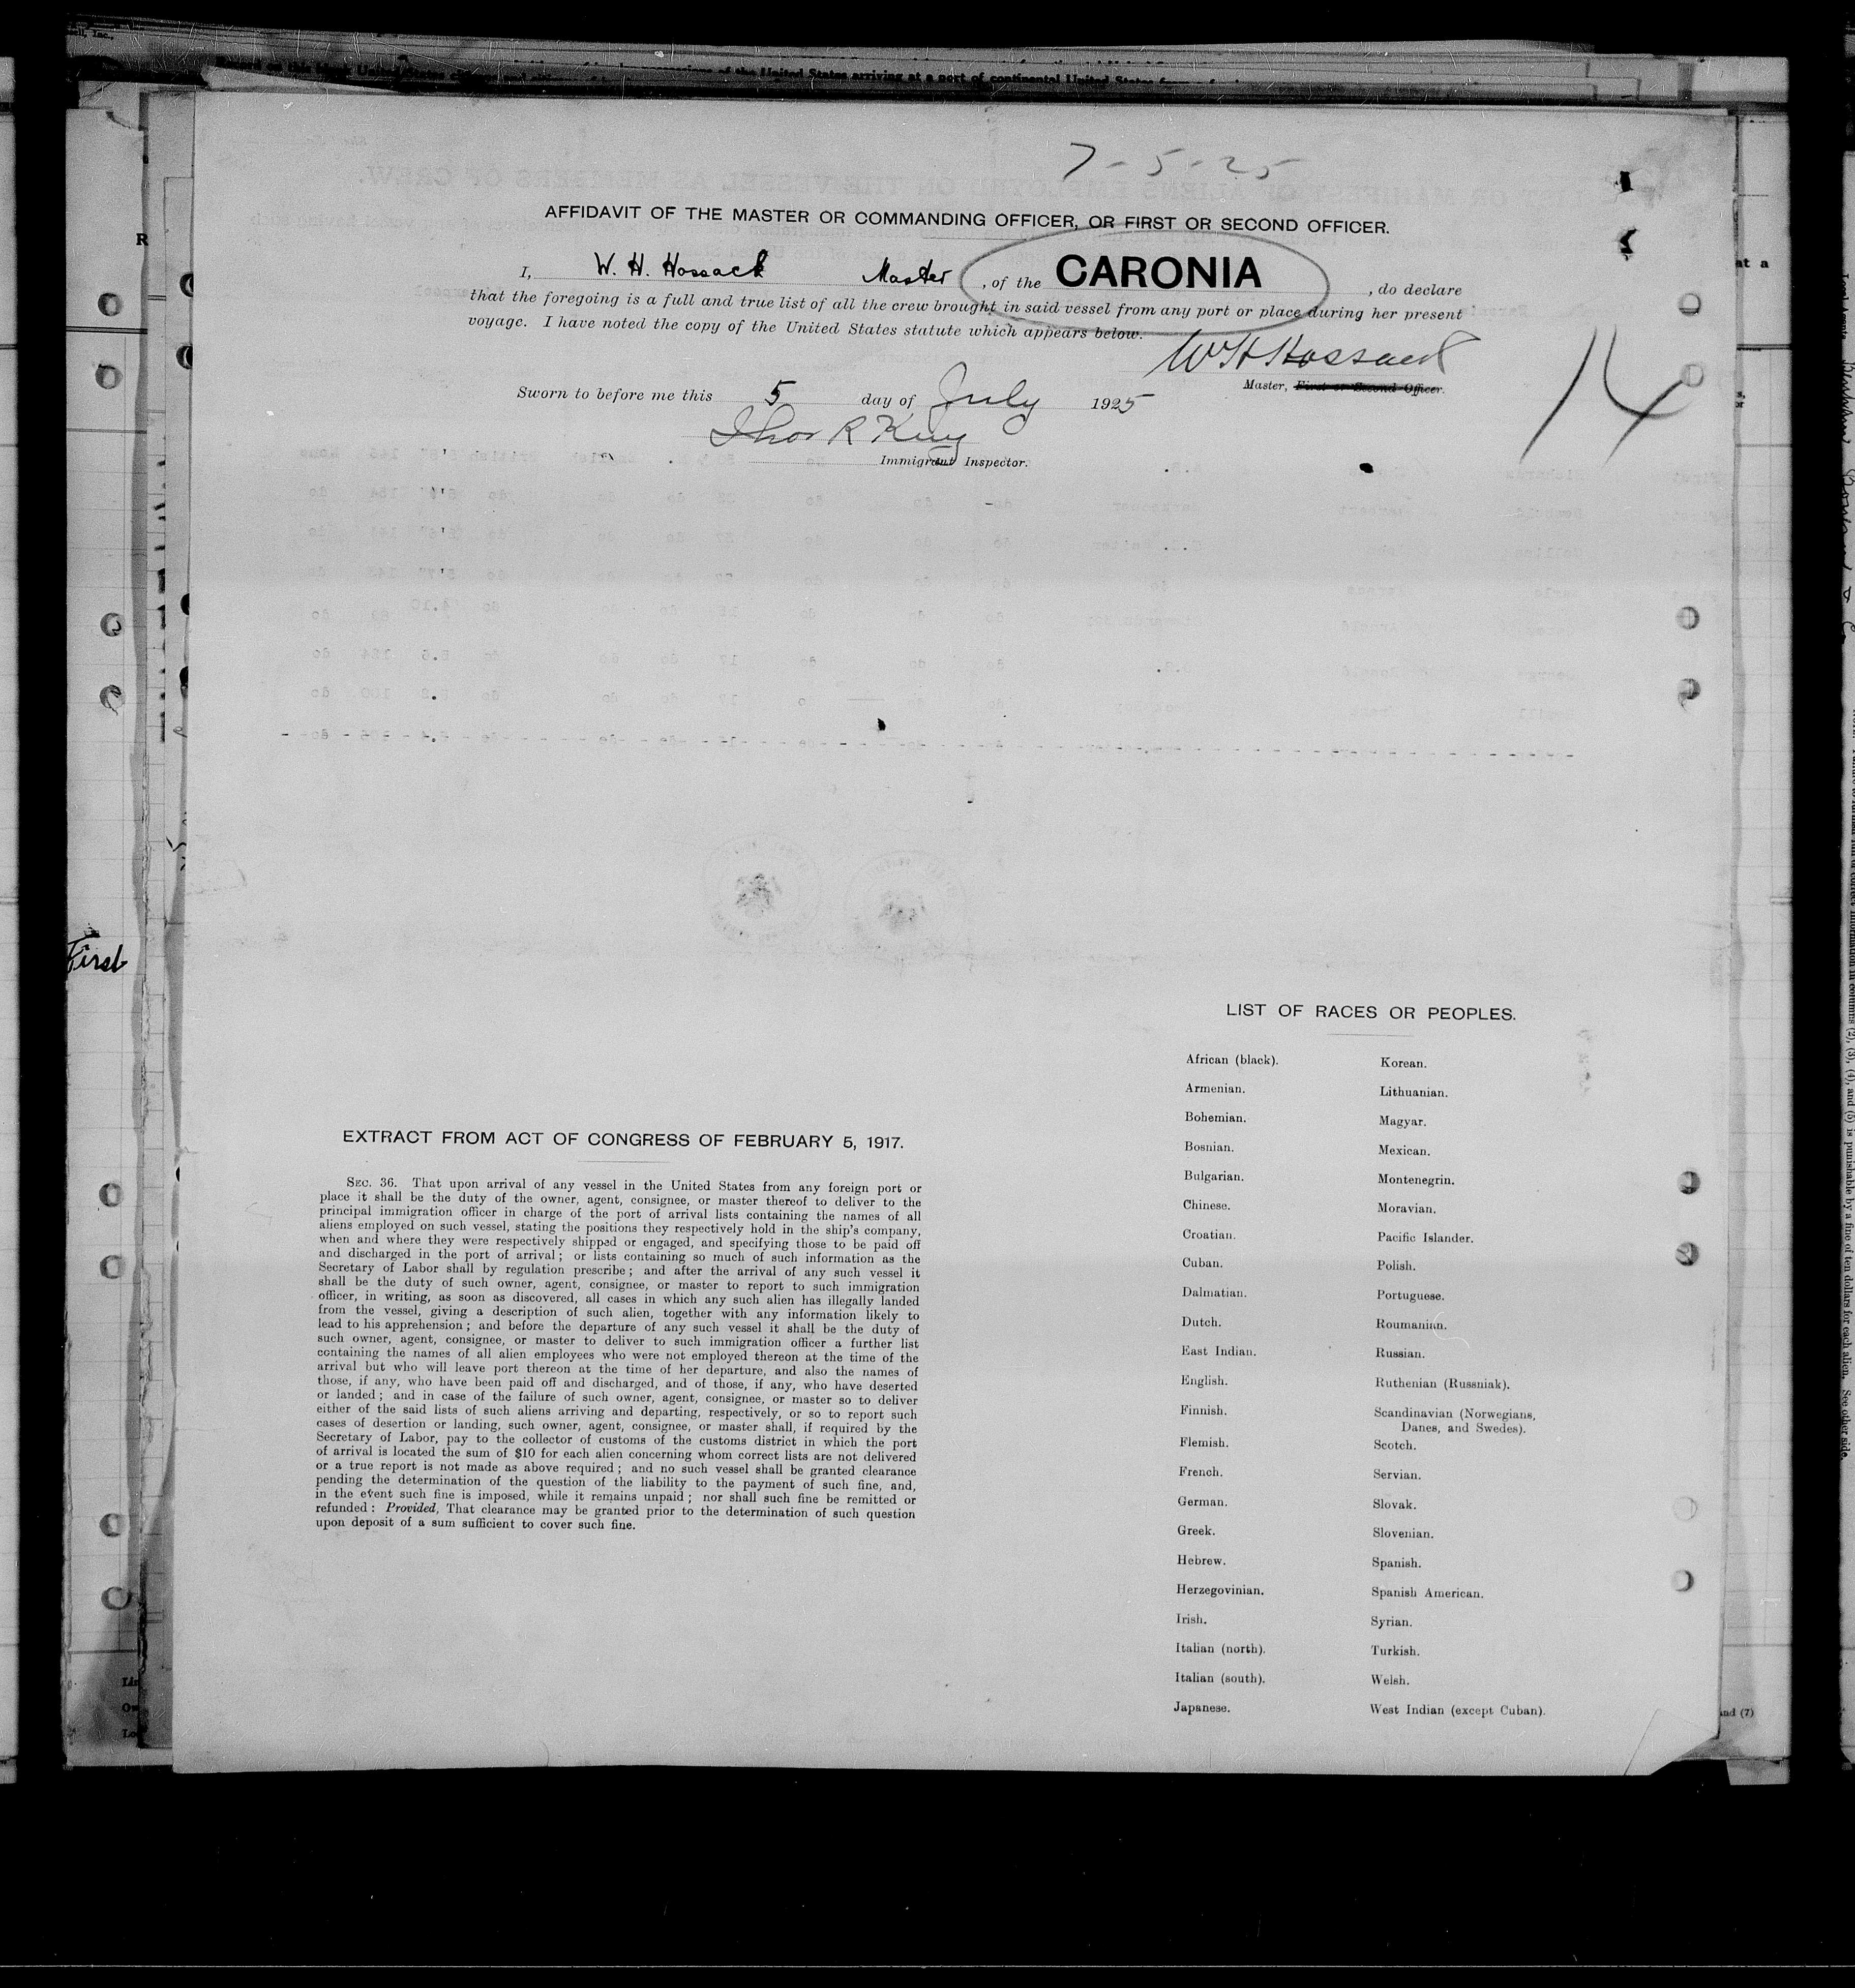 7-5-25
AFFIDAVIT OF THE MASTER OR COMMANDING OFFICER, OR FIRST OR SECOND OFFICER.
I, W. H. Hossack Master, of the CARONIA, do declare
that the foregoing is a full and true list of all the crew brought in said vessel from any port or place during her present
voyage. I have noted the copy of the United States statute which appears below.
W H Hossack
Master, First or Second Officer.
14
Sworn to before me this 5 day of July 1925
R King
Immigrant Inspector.
First
EXTRACT FROM ACT OF CONGRESS OF FEBRUARY 5, 1917.
SEC. 36. That upon arrival of any vessel in the United States from any foreign port or
place it shall be the duty of the owner, agent, consignee, or master thereof to deliver to the
principal immigration officer in charge of the port of arrival lists containing the names of all
aliens employed on such vessel, stating the positions they respectively hold in the ship's company,
when and where they were respectively shipped or engaged, and specifying those to be paid off
and discharged in the port of arrival; or lists containing so much of such information as the
Secretary of Labor shall by regulation prescribe; and after the arrival of any such vessel it
shall be the duty of such owner, agent, consignee, or master to report to such immigration
officer, in writing, as soon as discovered, all cases in which any such alien has illegally landed
from the vessel, giving a description of such alien, together with any information likely to
lead to his apprehension; and before the departure of any such vessel it shall be the duty of
such owner, agent, consignee, or master to deliver to such immigration officer a further list
containing the names of all alien employees who were not employed thereon at the time of the
arrival but who will leave port thereon at the time of her departure, and also the names of
those, if any, who have been paid off and discharged, and of those, if any, who have deserted
or landed; and in case of the failure of such owner, agent, consignee, or master so to deliver
either of the said lists of such aliens arriving and departing, respectively, or so to report such
cases of desertion or landing, such owner, agent, consignee, or master shall, if required by the
Secretary of Labor, pay to the collector of customs of the customs district in which the port
of arrival is located the sum of $10 for each alien concerning whom correct lists are not delivered
or a true report is not made as above required; and no such vessel shall be granted clearance
pending the determination of the question of the liability to the payment of such fine, and,
in the event such fine is imposed, while it remains unpaid; nor shall such fine be remitted or
refunded: Provided, That clearance may be granted prior to the determination of such question
upon deposit of a sum sufficient to cover such fine.
LIST OF RACES OR PEOPLES.
African (black).
Armenian.
Bohemian.
Bosnian.
Bulgarian.
Chinese.
Croatian.
Cuban.
Dalmatian.
Dutch.
East Indian.
English.
Finnish.
Flemish.
French.
German.
Greek.
Hebrew.
Herzegovinian.
Irish.
Italian (north).
Italian (south).
Japanese.
Korean.
Lithuanian.
Magyar.
Mexican.
Montenegrin.
Moravian.
Pacific Islander.
Polish.
Portuguese.
Roumanian.
Russian.
Ruthenian (Russniak).
Scandinavian (Norwegians,
Danes, and Swedes).
Scotch.
Servian.
Slovak.
Slovenian.
Spanish.
Spanish American.
Syrian.
Turkish.
Welsh.
West Indian (except Cuban).